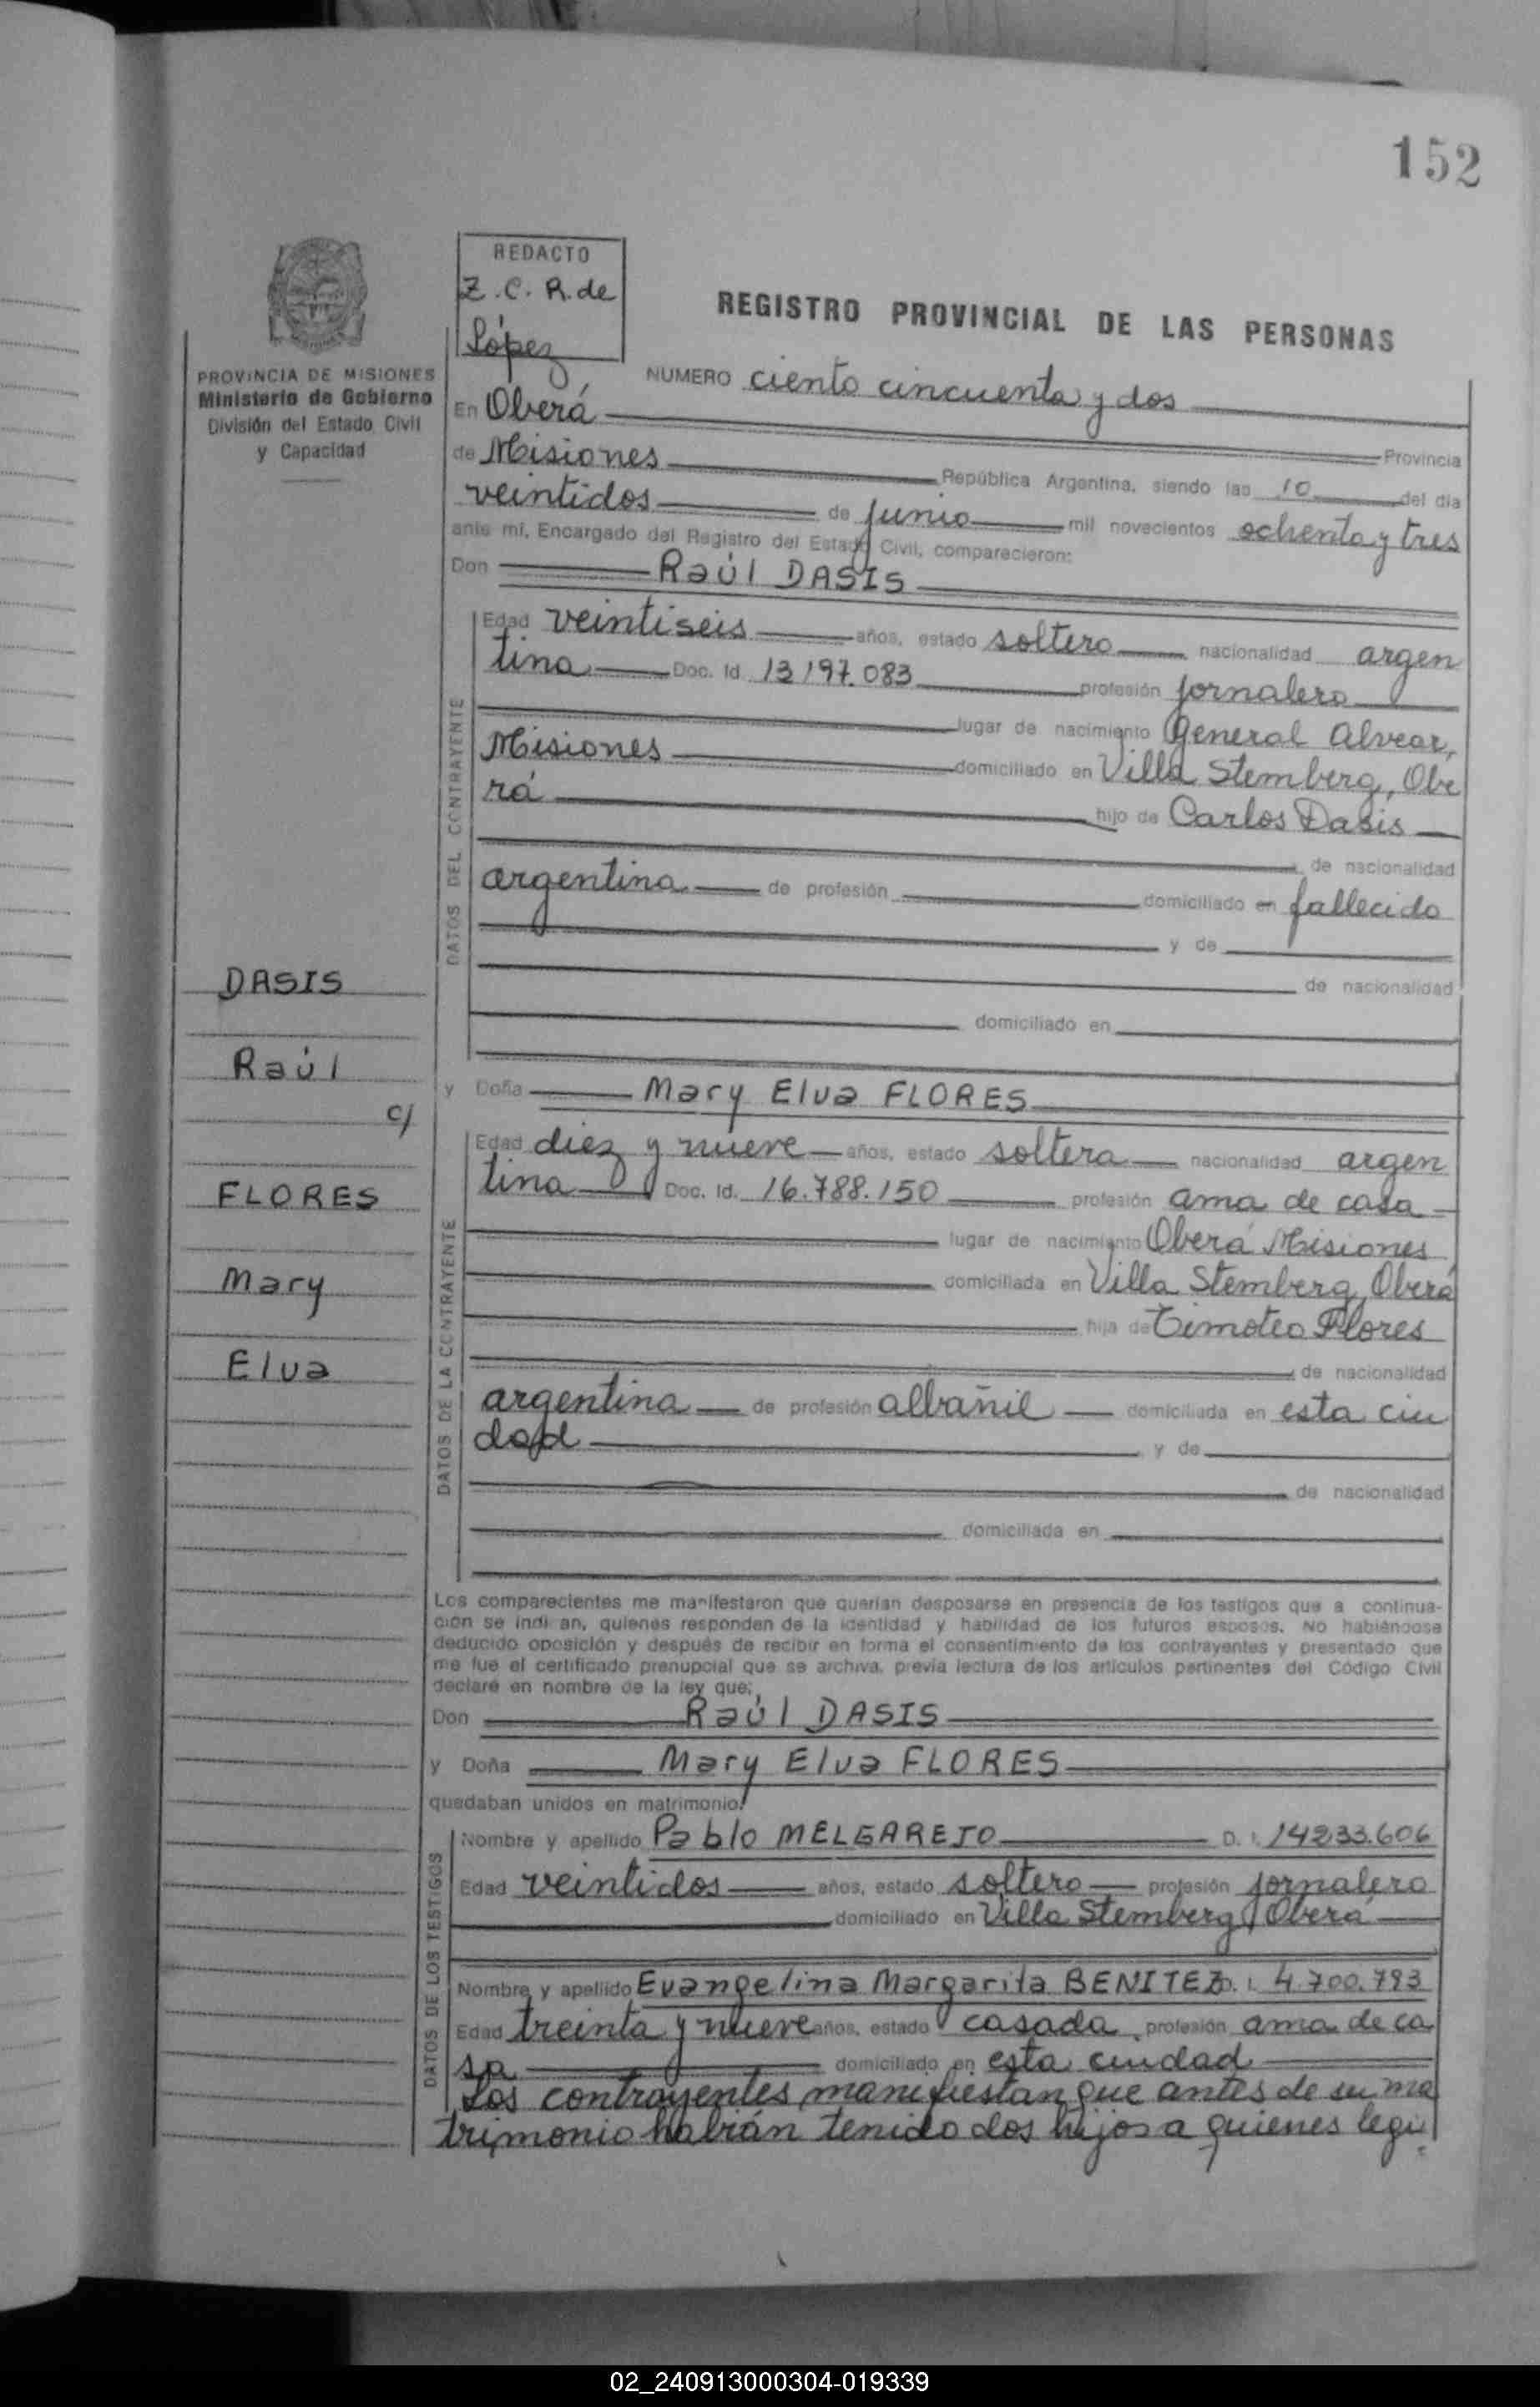 152
REDACTO
Z.C.R. de
López
REGISTRO PROVINCIAL DE LAS PERSONAS
PROVINCIA DE MISIONES
Ministerio de Gobierno
División del Estado Civil
y Capacidad
NUMERO ciento cincuenta y dos
En Oberá Provincia
de Misiones República Argentina, siendo las 10 del día
veintidos de junio mil novecientos ochenta y tres
ante mí, Encargado del Registro del Estado Civil, comparecieron:
Don Raúl DASIS
DATOS DEL CONTRAYENTE
Edad veintiseis años, estado soltero nacionalidad argen
tina Doc. Id. 13197.083 profesión jornalero
lugar de nacimiento General Alvear,
Misiones domiciliado en Villa Stemberg, Obe
rá hijo de Carlos Dasis
de nacionalidad
argentina de profesión domiciliado en fallecido
y de
de nacionalidad
domiciliado en
DASIS
Raúl
c/
FLORES
Mary
Elva
y Doña Mary Elva FLORES
DATOS DE LA CONTRAYENTE
Edad diez y nueve años, estado soltera nacionalidad argen
tina Doc. Id. 16.788.150 profesión ama de casa
lugar de nacimiento Oberá Misiones
domiciliada en Villa Stemberg, Oberá
hija de Timoteo Flores
de nacionalidad
argentina de profesión albañil domiciliada en esta ciu
dad y de
de nacionalidad
domiciliada en
Los comparecientes me manifestaron que querían desposarse en presencia de los testigos que a continua-
ción se indi an, quienes responden de la identidad y habilidad de los futuros esposos. No habiéndose
deducido oposición y después de recibir en forma el consentimiento de los contrayentes y presentado que
me fue el certificado prenupcial que se archiva, previa lectura de los artículos pertinentes del Código Civil
declaré en nombre de la ley que:
Don Raúl DASIS
y Doña Mary Elva FLORES
quedaban unidos en matrimonio.
DATOS DE LOS TESTIGOS
Nombre y apellido Pablo MELGAREJO D. I. 14233.606
Edad veintidos años, estado soltero profesión jornalero
domiciliado en Villa Stemberg, Oberá
Nombre y apellido Evangelina Margarita BENITEZ D. I. 4.700.793
Edad treinta y nueve años, estado casada profesión ama de ca
sa domiciliado en esta ciudad
Los contrayentes manifiestan que antes de su ma
trimonio habián tenido dos hijos a quienes legi
02_240913000304-019339